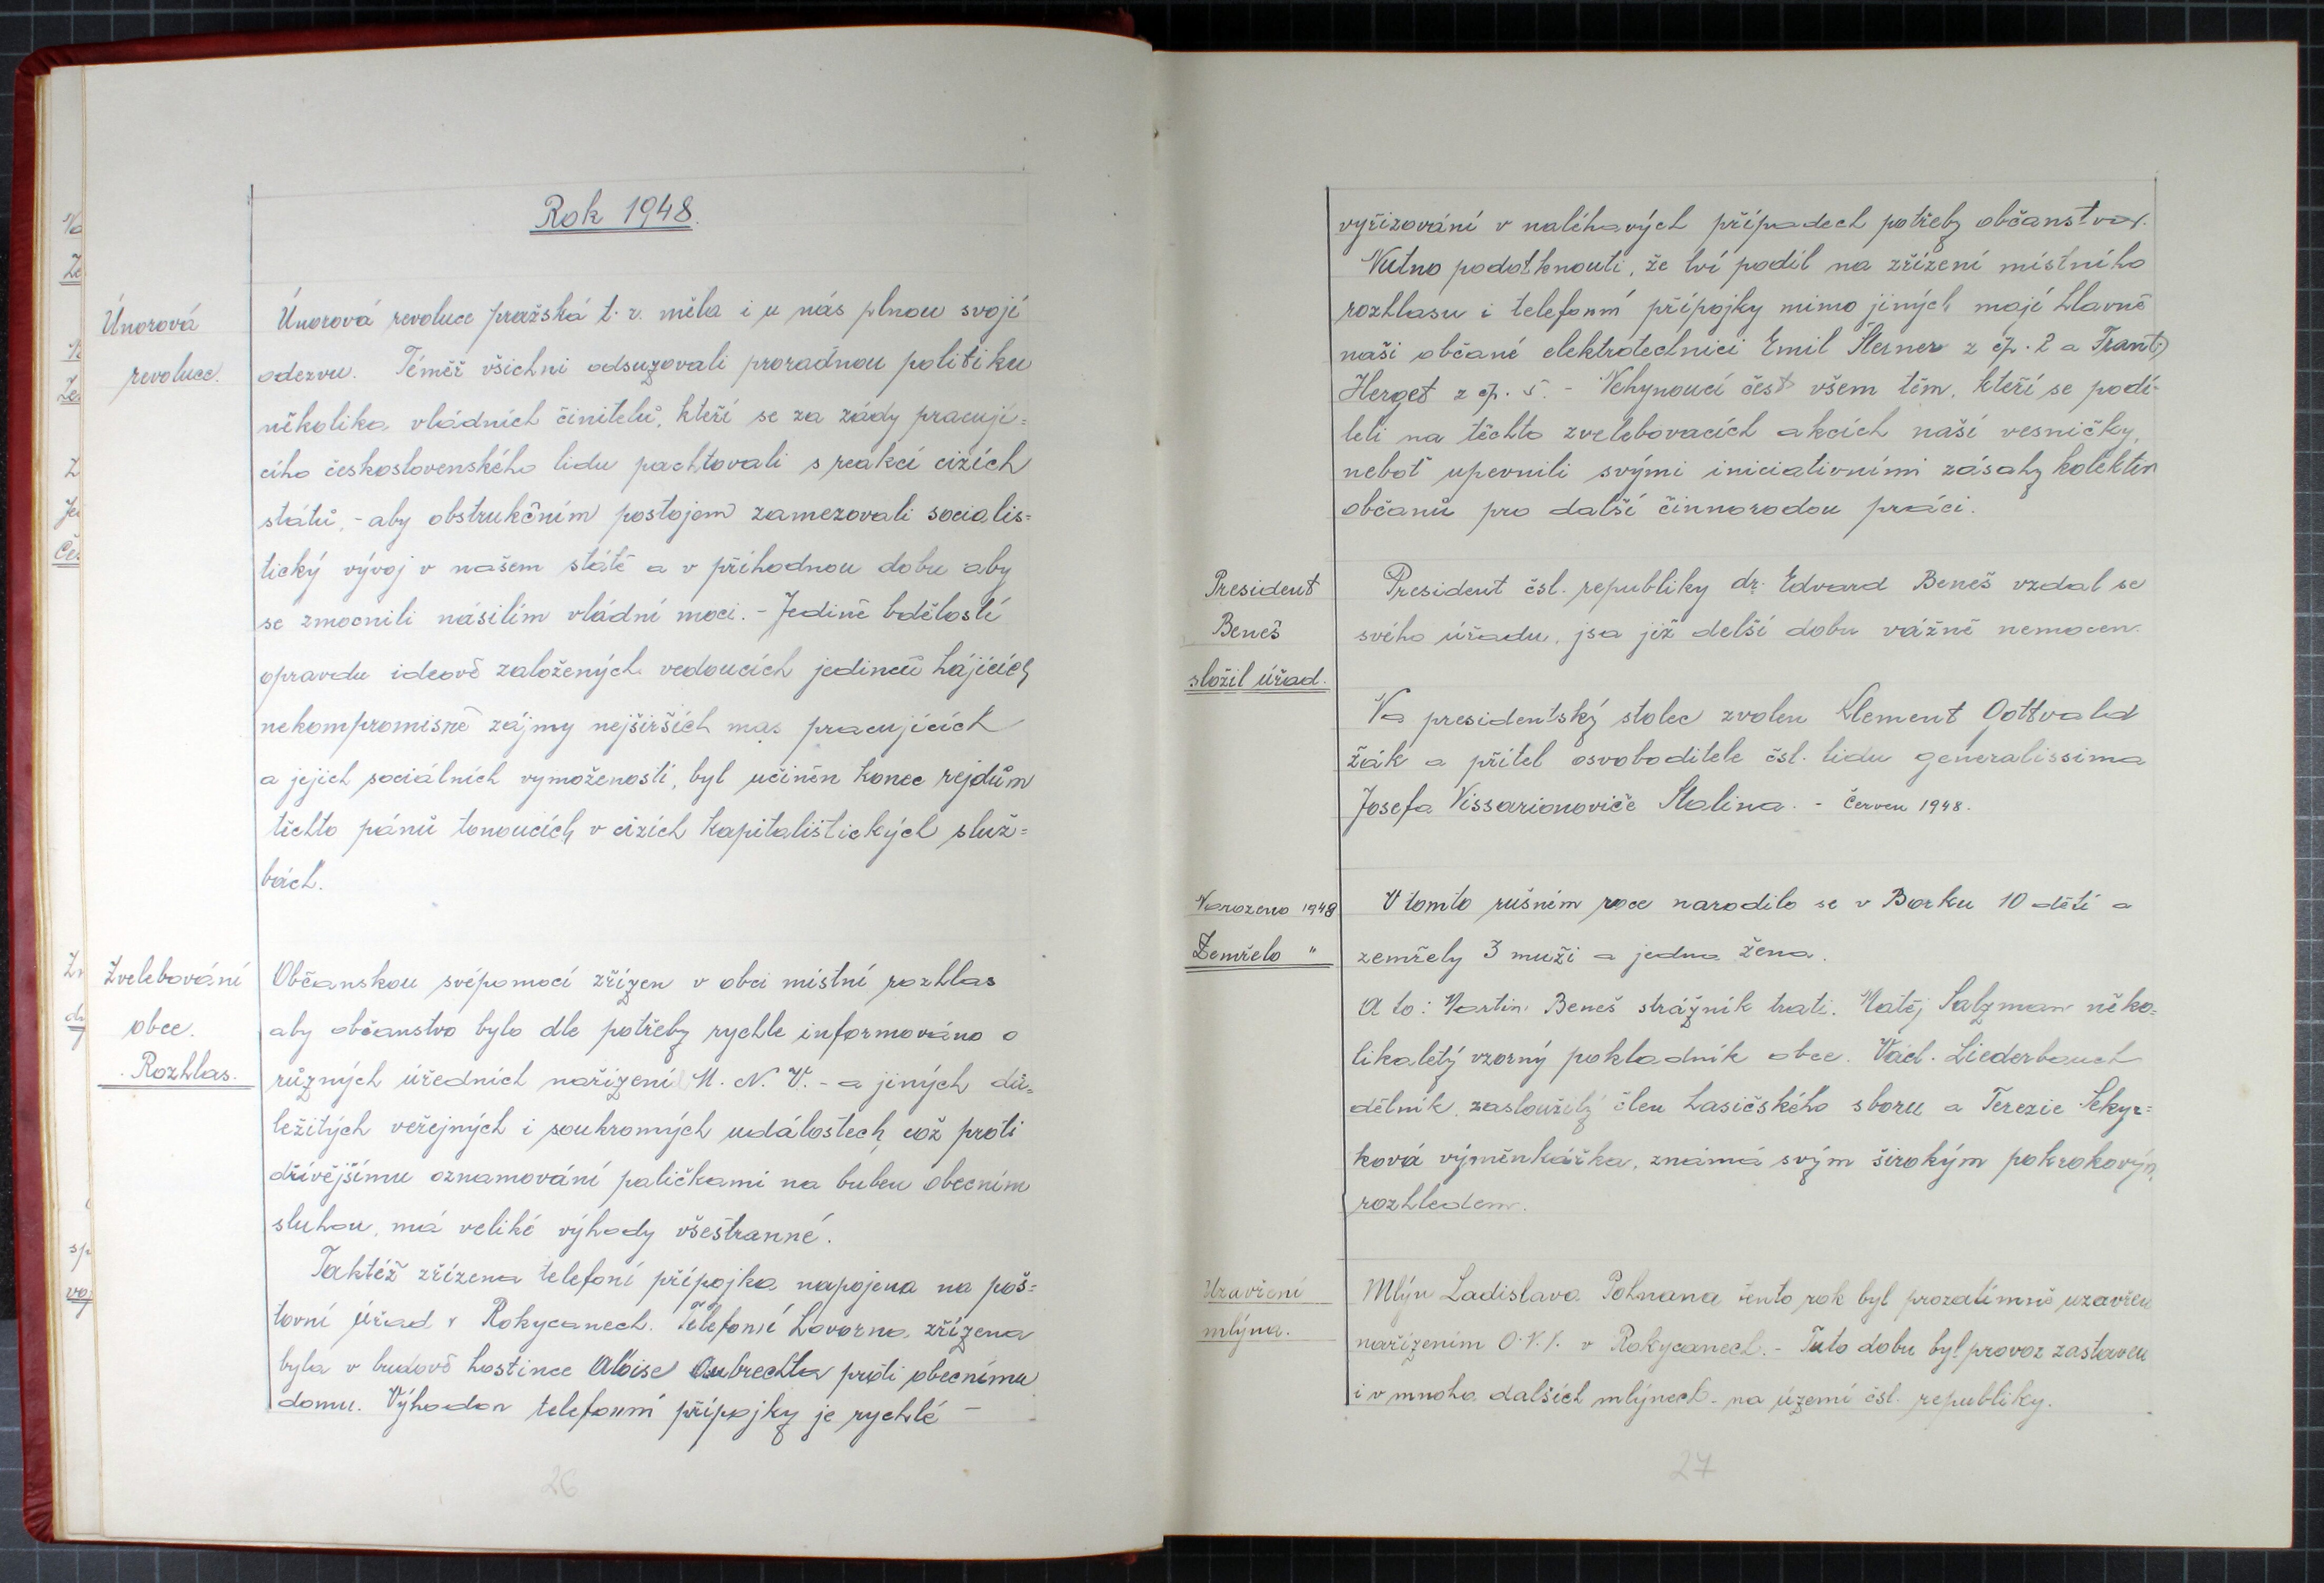 Rok 1948.
Únorová
revoluce.
Únorová revoluce pražská t. r. měla i u nás plnou svojí
odezvu. Téměř všichni odsuzovali proradnou politiku
několika vládních činitelů, kteří se za zády pracují=
cího československého lidu pachtovali s reakcí cizích
států, - aby obstrukčním postojem zamezovali socialis=
tický vývoj v našem státě a v příhodnou dobu aby
se zmocnili násilím vládní moci. - Jedině bdělostí
opravdu ideově založených vedoucích jedinců hájících
nekompromisně zájmy nejširších mas pracujících
a jejich sociálních vymožeností, byl učiněn konec rejdům
těchto pánů tonoucích v cizích kapitalistických služ=
bách.
Zvelebování
obce.
Rozhlas.
Občanskou svépomocí zřízen v obci místní rozhlas
aby občanstvo bylo dle potřeby rychle informováno o
různých úředních nařízení M. N. V. - a jiných dů=
ležitých veřejných i soukromých událostech, což proti
dřívějšímu oznamování paličkami na buben obecním
sluhou, má veliké výhody všestranné.
Taktéž zřízena telefoní přípojka napojena na poš=
tovní úřad v Rokycanech. Telefoní hovorna zřízena
byla v budově hostince Aloise Aubrechta proti obecnímu
domu. Výhodou telefonní přípojky je rychlé -
26
vyřizování v naléhavých případech potřeby občanstva.
Nutno podotknouti, že lví podíl na zřízení místního
rozhlasu i telefonní přípojky mimo jiných mají hlavně
naši občané elektrotechnici Emil Šterner z čp. 2 a Frant.
Herget z čp. 5. - Nehynoucí čest všem těm, kteří se podí-
leli na těchto zvelebovacích akcích naší vesničky,
neboť upevnili svými iniciativními zásahy kolektiv
občanů pro další činnorodou práci.
President
Beneš
složil úřad.
President čsl. republiky dr. Edvard Beneš vzdal se
svého úřadu, jsa již delší dobu vážně nemocen.
Na presidentský stolec zvolen Klement Gottvald
žák a přítel osvoboditele čsl. lidu generalissima
Josefa Vissarionoviče Stalina. - Červen 1948.
Narozeno 1948
Zemřelo "
V tomto rušném roce narodilo se v Borku 10 dětí a
zemřely 3 muži a jedna žena.
A to: Martin Beneš strážník trati. Matěj Salzman něko=
likaletý vzorný pokladník obce. Václ. Liederbauch
dělník, zasloužilý člen hasičského sboru a Terezie Sekyr=
ková výměnkářka, známá svým širokým pokrokovým
rozhledem.
Uzavření
mlýna.
Mlýn Ladislava Pohnana tento rok byl prozatimně uzavřen
nařízením O. N. V. v Rokycanech. - Tuto dobu byl provoz zastaven
i v mnoha dalších mlýnech - na území čsl. republiky.
27